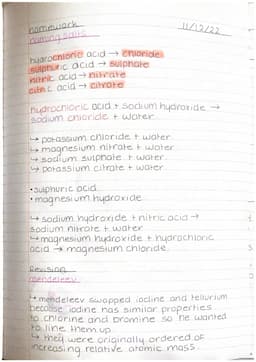 homework 11/12/22
naming salts
hydrochloric acid → chloride
sulphuric acid → sulphate
nitric acid → nitrate
citric acid → citrate
hydrochloric acid + sodium hydroxide →
sodium chloride + water
↳ potassium chloride + water
↳ magnesium nitrate + water
↳ sodium sulphate + water
↳ potassium citrate + water
• sulphuric acid
• magnesium hydroxide
↳ sodium hydroxide + nitric acid →
sodium nitrate + water
↳ magnesium hydroxide + hydrochloric
acid → magnesium chloride
Revising
mendeleev
↳ mendeleev swapped iodine and tellurium
because iodine has similar properties
to chlorine and bromine so he wanted
to line them up
↳ they were originally ordered in
increasing relative atomic mass.